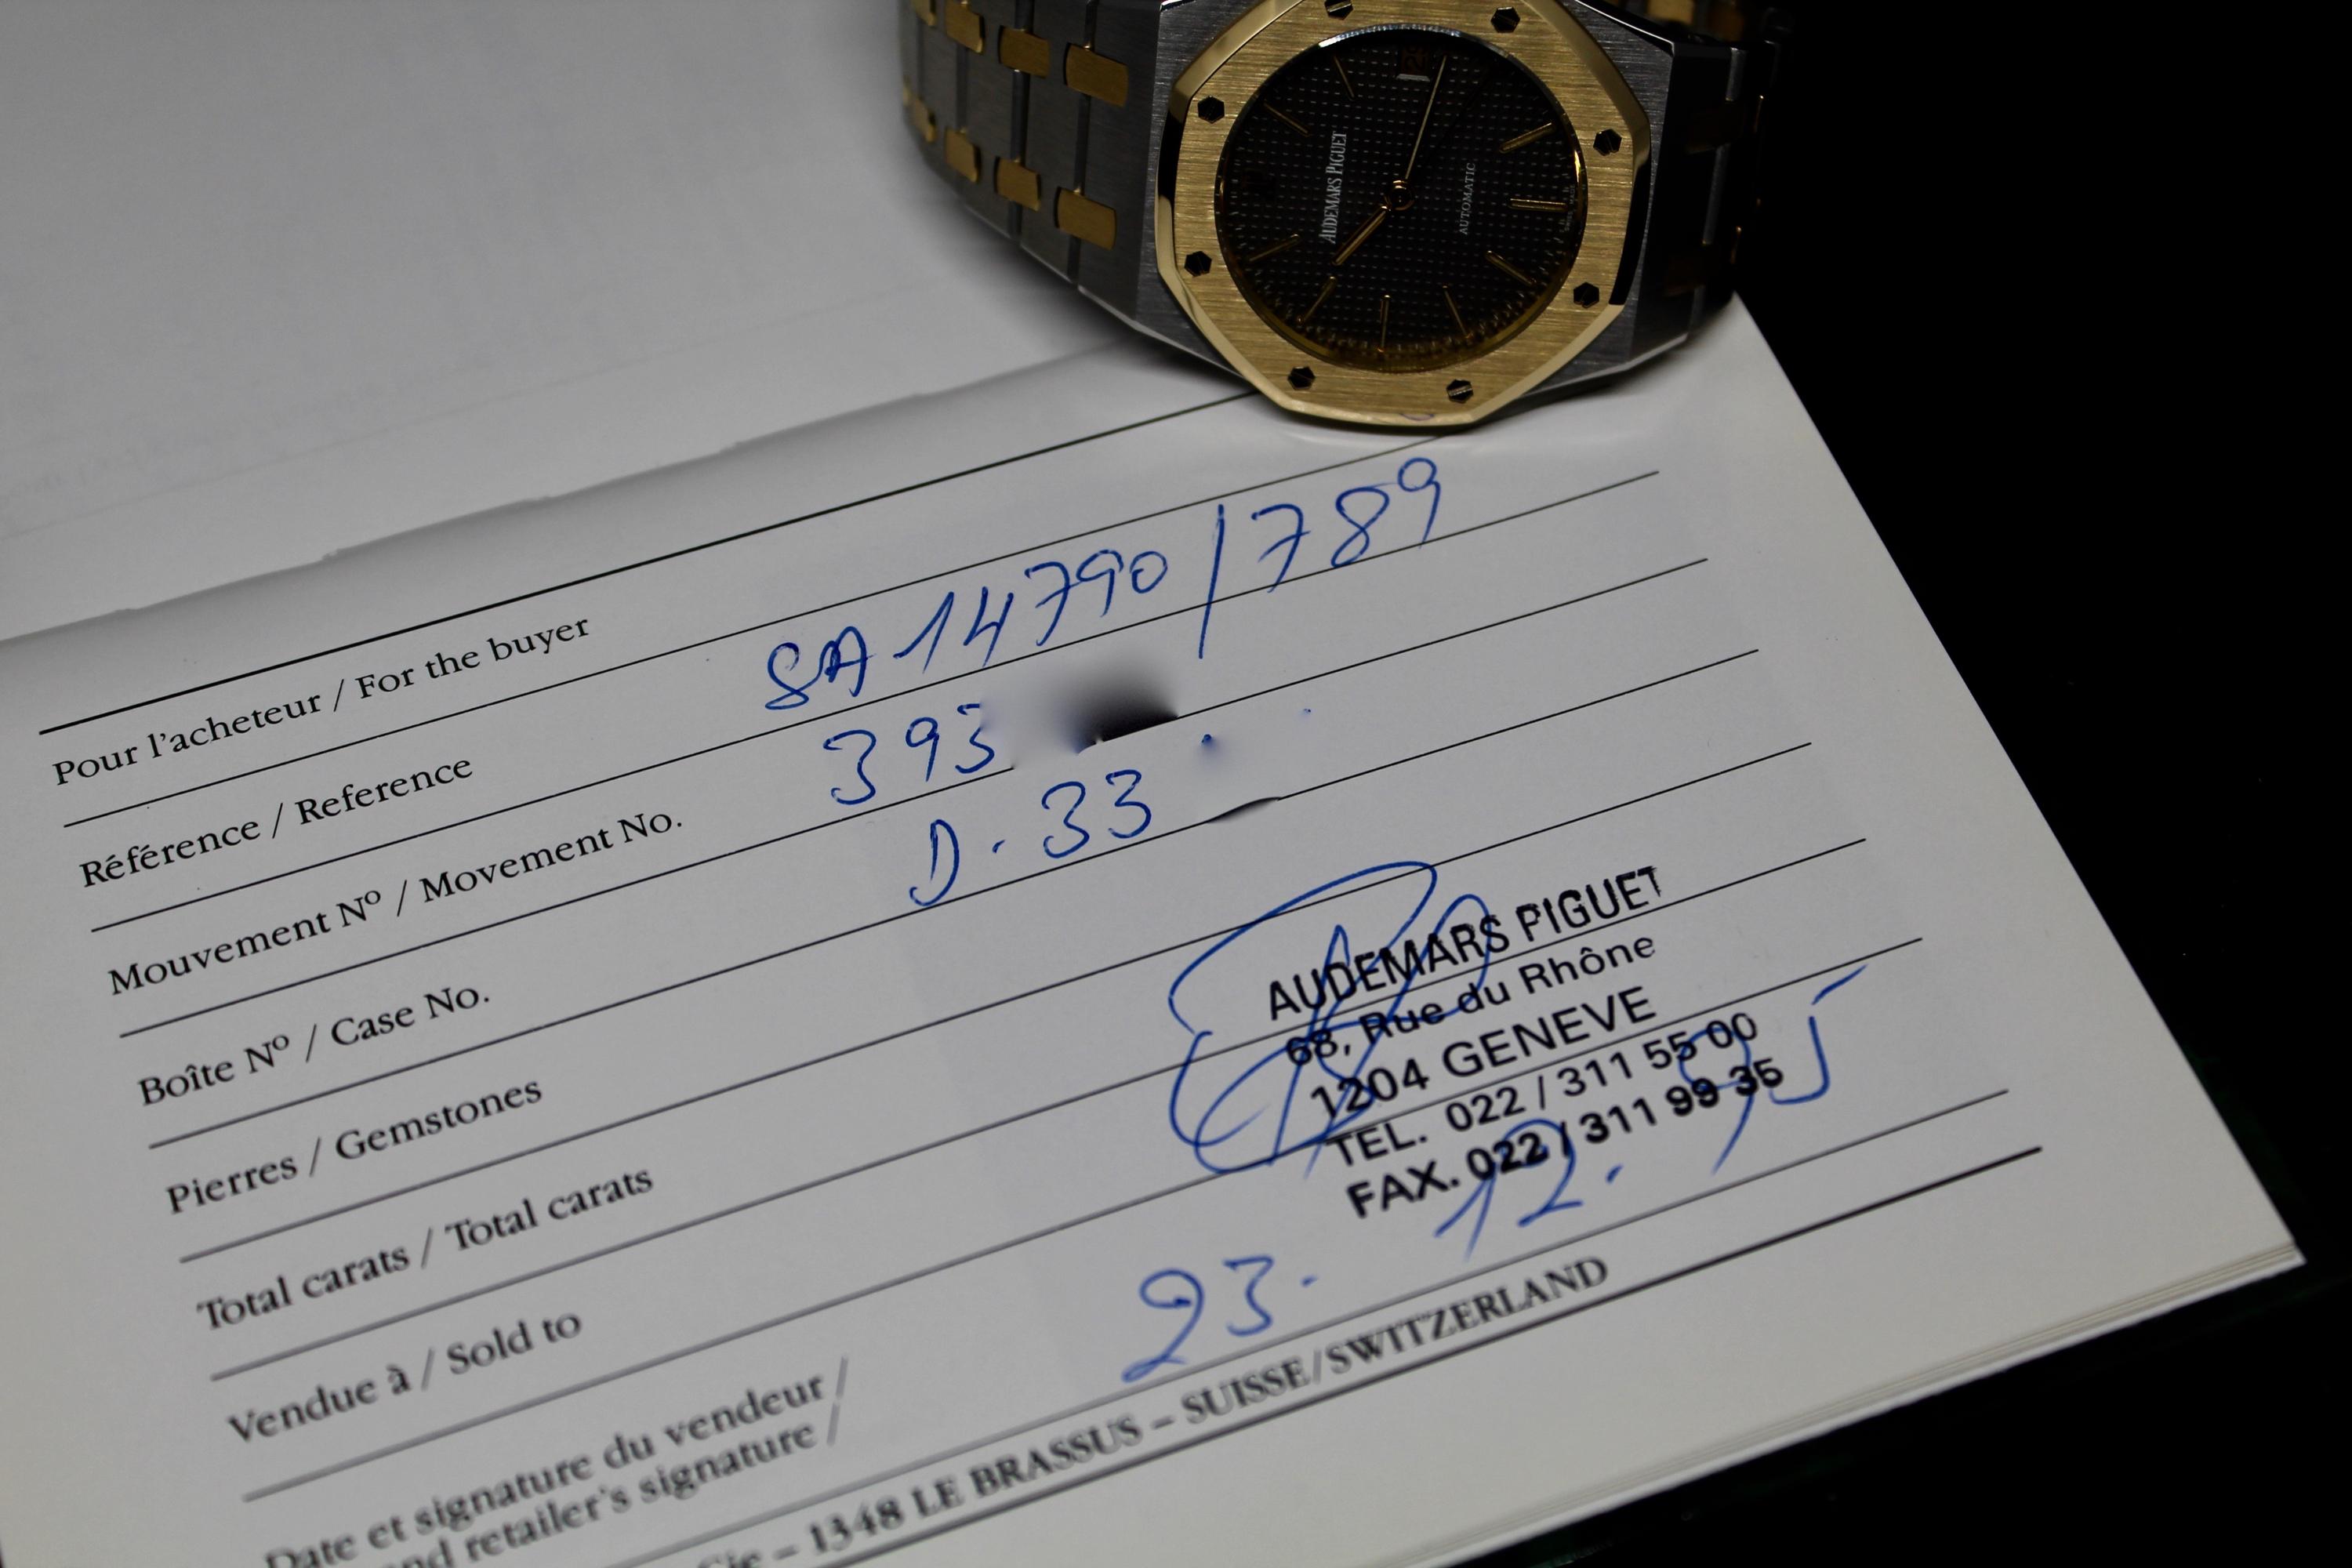 AUDEMARS PIGUET
AUTOMATIC
Pour l'acheteur / For the buyer
Référence / Reference SA 14790/789
Mouvement Nº / Movement No. 393
Boîte Nº / Case No. D.33
Pierres / Gemstones
Total carats / Total carats
Vendue à / Sold to
Date et signature du vendeur /
and retailer's signature /
AUDEMARS PIGUET
68, Rue du Rhône
1204 GENEVE
TEL. 022 / 311 55 00
FAX. 022 / 311 99 35
23. 12. 95
Cie – 1348 LE BRASSUS – SUISSE/SWITZERLAND